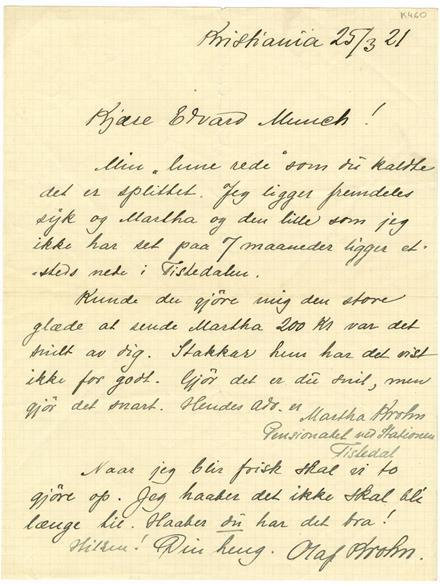 K460
Kristiania 25/3 21
Kjære Edvard Munch!
Min „lune rede“ som du kaldte
det er splittet. Jeg ligger fremdeles
syk og Martha og den lille som jeg
ikke har set paa 7 maaneder ligger et-
steds nede i Tistedalen.
Kunde du gjöre mig den store
glæde at sende Martha 200 Kr var det
snilt av dig. Stakkar hun har det vist
ikke for godt. Gjör det er du snil, men
gjör det snart. Hendes adr. er
Martha Krohn
Pensionatet ved Stationen
Tistedal
Naar jeg blir frisk skal vi to
gjöre op. Jeg haaber det ikke skal bli
længe til. Haaber du har det bra!
Hilsen! Din heng. Olaf Krohn.